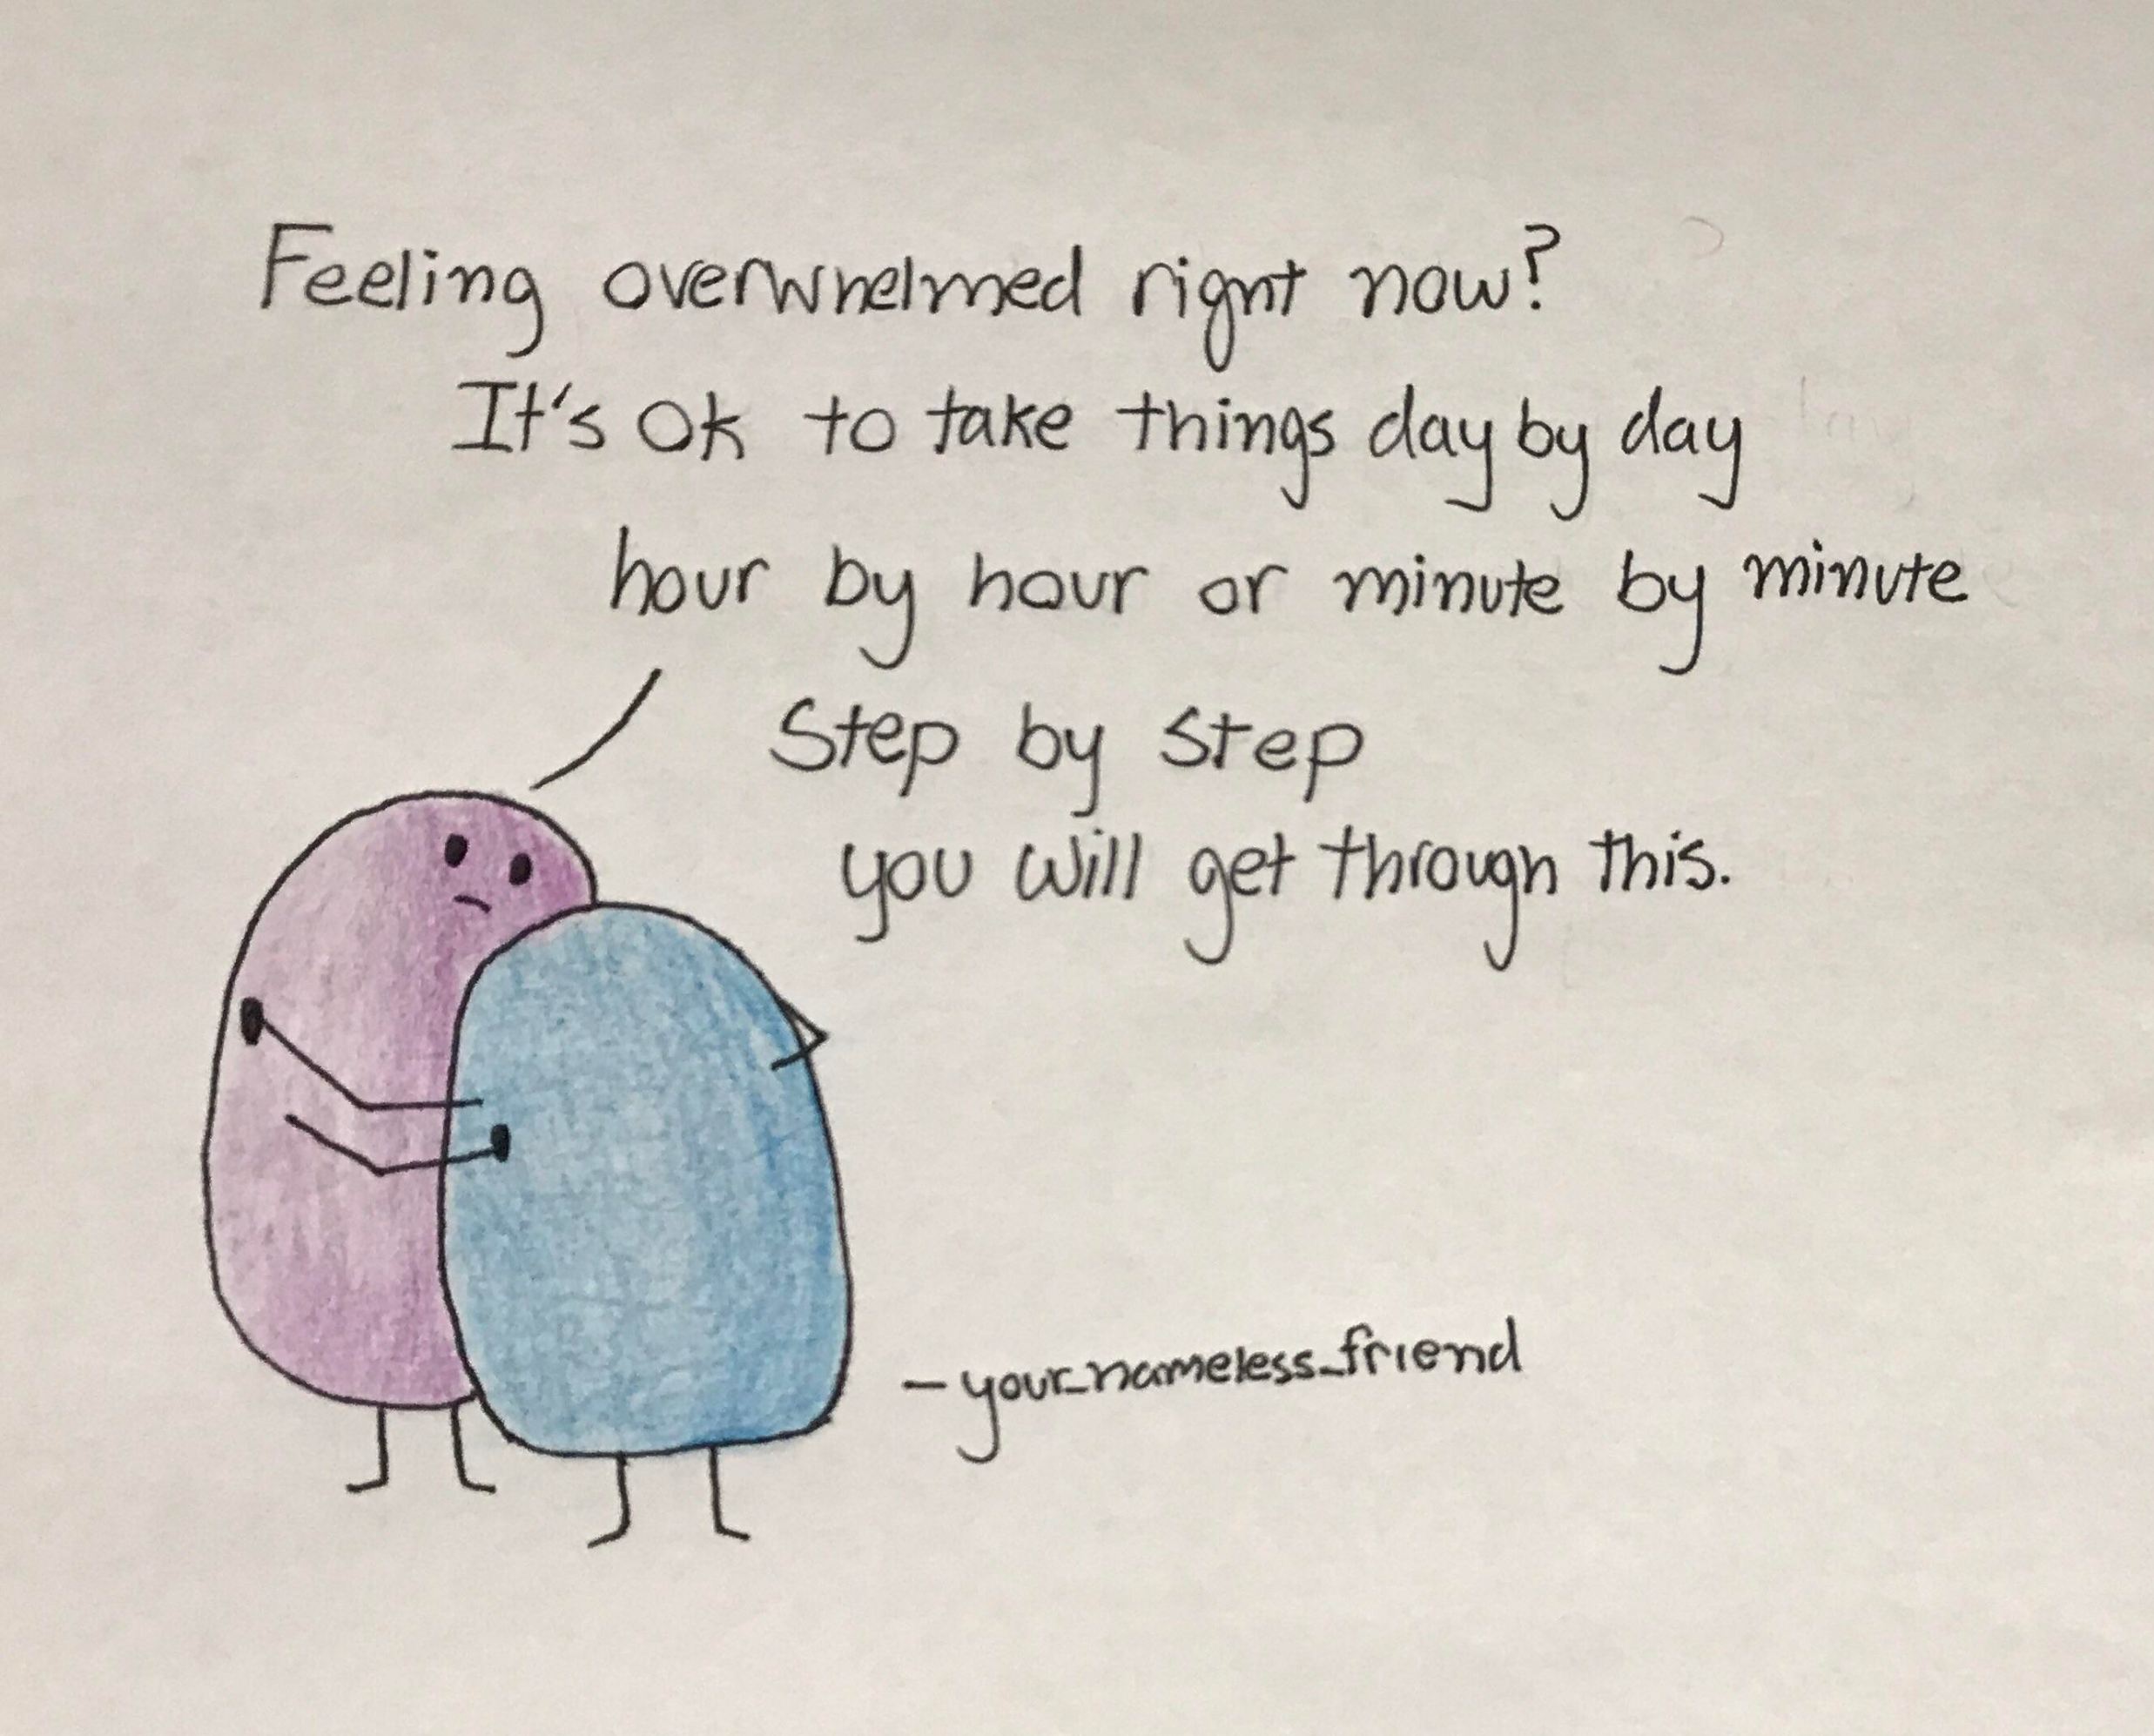 Feeling overwhelmed right now?
It's ok to take things day by day
hour by hour or minute by minute
Step by step
you will get through this.
- your_nameless_friend